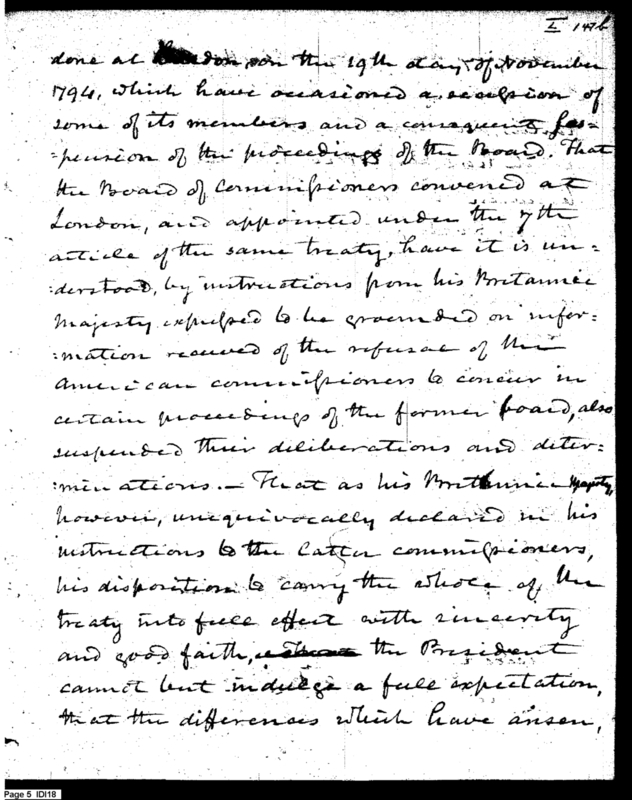 I 147b
done at London, on the 19th day of November
1794, which have occasioned a secession of
some of its members and a consequent sus=
=pension of the proceedings of the Board. That
the Board of Commissioners convened at
London, and appointed under the 7th
article of the same treaty, have it is un=
=derstood, by instructions from his Britannic
Majesty expressed to be grounded on infor=
=mation received of the refusal of the
American commissioners to concur in
certain proceedings of the former board, also
suspended their deliberations and deter=
=minations. — That as his Britannic Majesty,
however, unequivocally declared in his
instructions to the latter commissioners,
his disposition to carry the whole of the
treaty into full effect with sincerity
and good faith, the President
cannot but indulge a full expectation,
that the differences which have arisen,
Page 5 IDI18